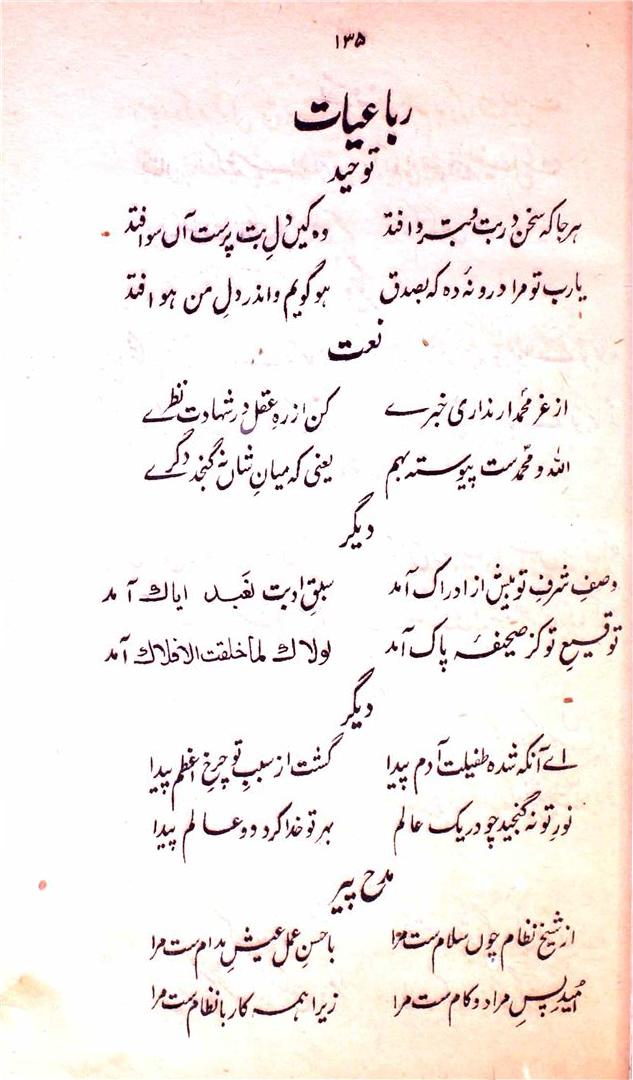 ۱۳۵
رباعیات
توحید
ہرجا کہ سخن در بت و بتر و افتد وہ کیں دلِ بت پرست آں سو افتد
یارب تو مرا درونۂ دہ کہ بصدق ہو گویم و اندر دلِ من ہو افتد
نعت
از عز محمدؐ ار نداری خبرے کن از رہِ عقل در شہادت نظرے
اللہ و محمدؐ ست پیوستہ بہم یعنی کہ میانِ شاں نہ گنجد دگرے
دیگر
وصفِ شرفِ تو بیش از ادراک آمد سبقِ ادبت نَعَبد ایاک آمد
توقیعِ تو کز صحیفۂ پاک آمد لولاک لما خلقت الافلاک آمد
دیگر
اے آنکہ شدہ طفیلت آدم پیدا گشت از سببِ تو چرخِ اعظم پیدا
نورِ تو نہ گنجید چو در یک عالم بہر تو خدا کرد دو عالم پیدا
مدحِ پیر
از شیخ نظام چوں سلام ست مرا با حسنِ عمل عیشِ مدام ست مرا
اُمید پسِ مراد و کام ست مرا زیرا ہمہ کار با نظام ست مرا